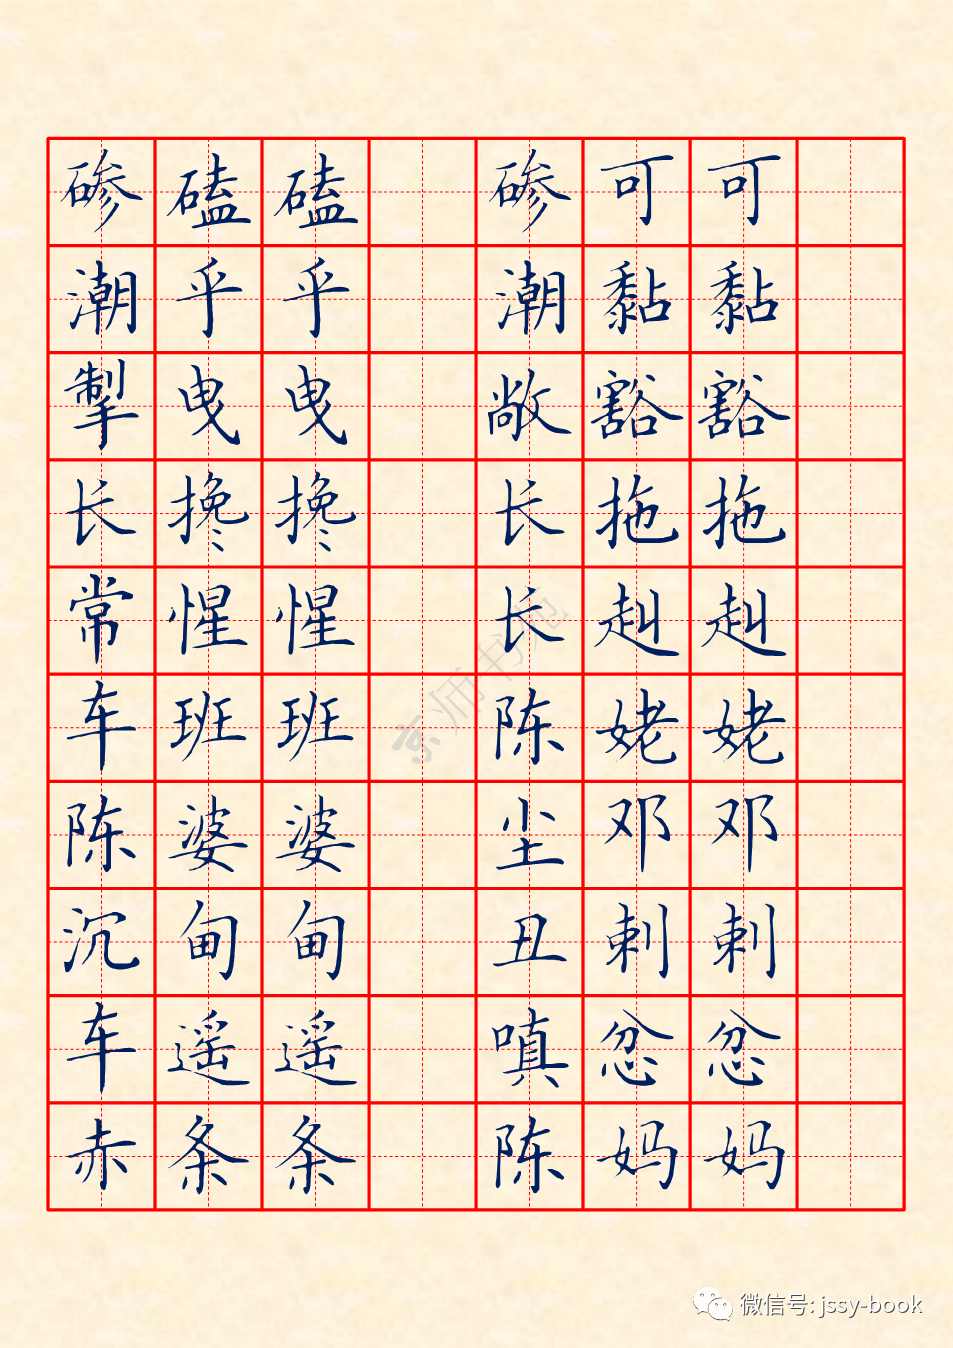 碜磕磕碜可可
潮乎乎潮黏黏
掣曳曳敞豁豁
长搀搀长拖拖
常惺惺长赳赳
车班班陈姥姥
陈婆婆尘邓邓
沉甸甸丑剌剌
车遥遥嗔忿忿
赤条条陈妈妈
京师书苑
微信号: jssy-book